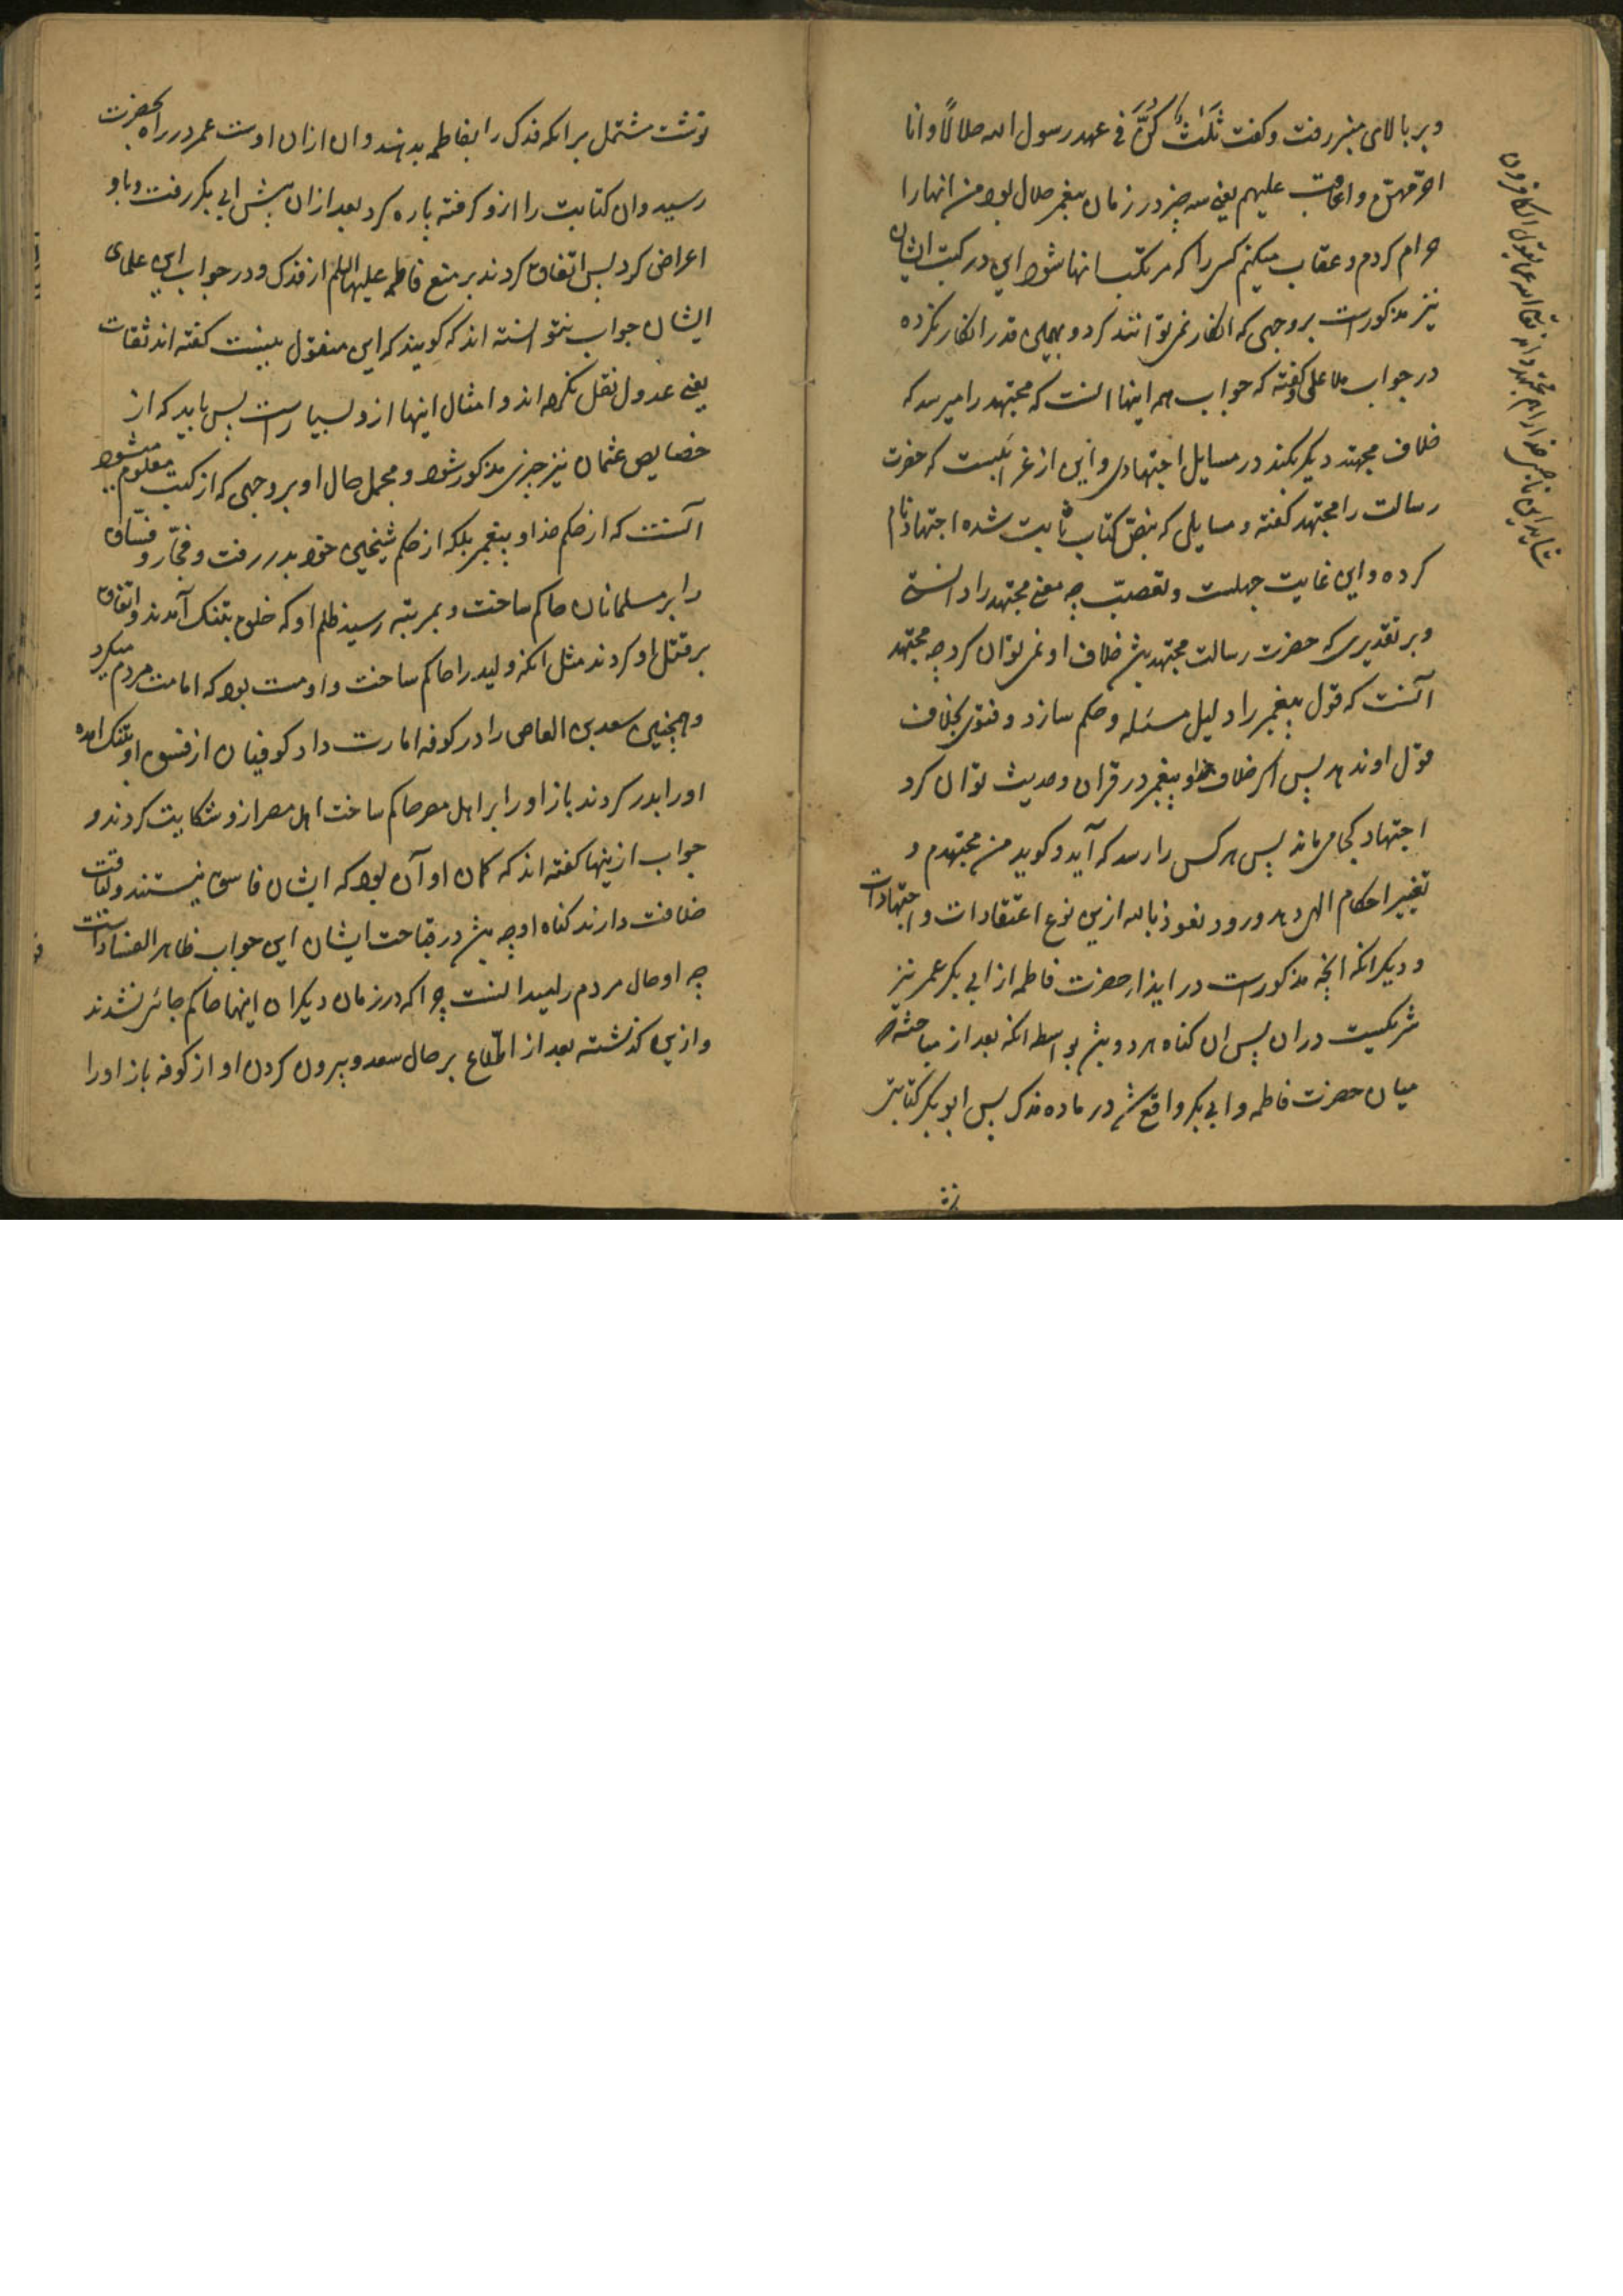 و بر بالای منبر رفت و کفت ثلثٌ کنّ فی عهد رسول الله حلالاً و انا
احرّمهنّ و اعاقب علیهم یعنی سه چیز در زمان پیغمبر حلال بود من انها را
حرام کردم و عقاب میکنم کسی را که مرتکب انها شود این در کتب ایشان
نیز مذکورست بر وجهی که انکار نمی توانند کرد و بهمین قدر انکار نکرده
در جواب ملا علی کفته که جواب همه اینها انست که مجتهد را میرسد که
خلاف مجتهد دیکر بکند در مسایل اجتهادی و این از غرائبست که حضرت
رسالت را مجتهد کفته و مسایلی که بنصّ کتاب ثابت شده اجتهاد نام
کرده و این غایت جهلست و تعصب چه معنی مجتهد را دانستی
و بر تقدیری که حضرت رسالت مجتهد بود خلاف او نمی توان کرد چه مجتهد
آنست که قول پیغمبر را دلیل مسئله و حکم سازد و فتوی بخلاف
قول او ندهد پس اکر خلاف خدا و پیغمبر در قران و حدیث توان کرد
اجتهاد کجا می ماند پس هر کس را رسد که آید و کوید من مجتهدم و
تغییر احکام الهی دهد و رود نعوذ بالله ازین نوع اعتقادات و اجتهادات
و دیکر انکه انچه مذکورست در ایذاء حضرت فاطمه از ابی بکر عمر نیز
شریکست دران پس ان کناه هر دو بواسطه انکه بعد از مباحثه
میان حضرت فاطمه و ابی بکر واقع شد در ماده فدک پس ابو بکر کتابتی
شاید این تاجر خدا را هم مجتهد داند تعالی الله عما یقول الکافرون
نوشت مشتمل بر انکه فدک را بفاطمه بدهند و ان ازان اوست عمر در راه بحضرت
رسید و ان کتابت را ازو کرفته پاره کرد بعد ازان پیش ابی بکر رفت و با و
اعراض کرد پس اتفاق کردند بر منع فاطمه علیها السلم از فدک و در جواب این علمای
ایشان جواب نتوانسته اند که کویند که این منقول نیست کفته اند ثقات
یعنی عدول نقل نکرده اند و امثال اینها ازو بسیارست پس باید که از
خصایص عثمان نیز چیزی مذکور شود و مجمل حال او بر وجهی که از کتب معلوم میشود
آنست که از حکم خدا و پیغمبر بلکه از حکم شیخین خود بدر رفت و فجّار و فسّاق
را بر مسلمانان حاکم ساخت و بمرتبه رسید ظلم او که خلق بتنک آمدند و اتفاق
بر قتل او کردند مثل انکه ولید را حاکم ساخت و او مست بود که امامت مردم میکرد
و همچنین سعد بن العاص را در کوفه امارت داد کوفیان از فسق او بتنک امده
او را بدر کردند باز او را بر اهل مصر حاکم ساخت اهل مصر ازو شکایت کردند و
جواب ازینها کفته اند که کمان او آن بود که ایشان فاسق نیستند و لیاقت
خلافت دارند کناه او چه در قباحت ایشان این جواب ظاهر الفسادست
چه او حال مردم را میدانست چرا که در زمان دیکران اینها حاکم جائی نشدند
و ازین کذشته بعد از اطّلاع بر حال سعد و بیرون کردن او از کوفه باز او را